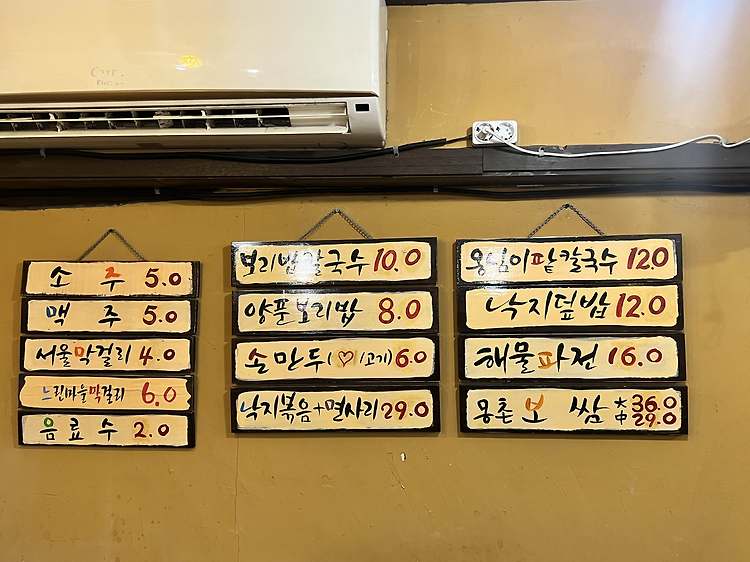 소 주 5.0
맥 주 5.0
서울막걸리 4.0
느린마을막걸리 6.0
음 료 수 2.0
보리밥칼국수 10.0
양푼보리밥 8.0
손만두(♡/고기) 6.0
낙지볶음+면사리 29.0
옹심이팥칼국수 12.0
낙지덮밥 12.0
해물파전 16.0
보 쌈 大 36.0
中 29.0